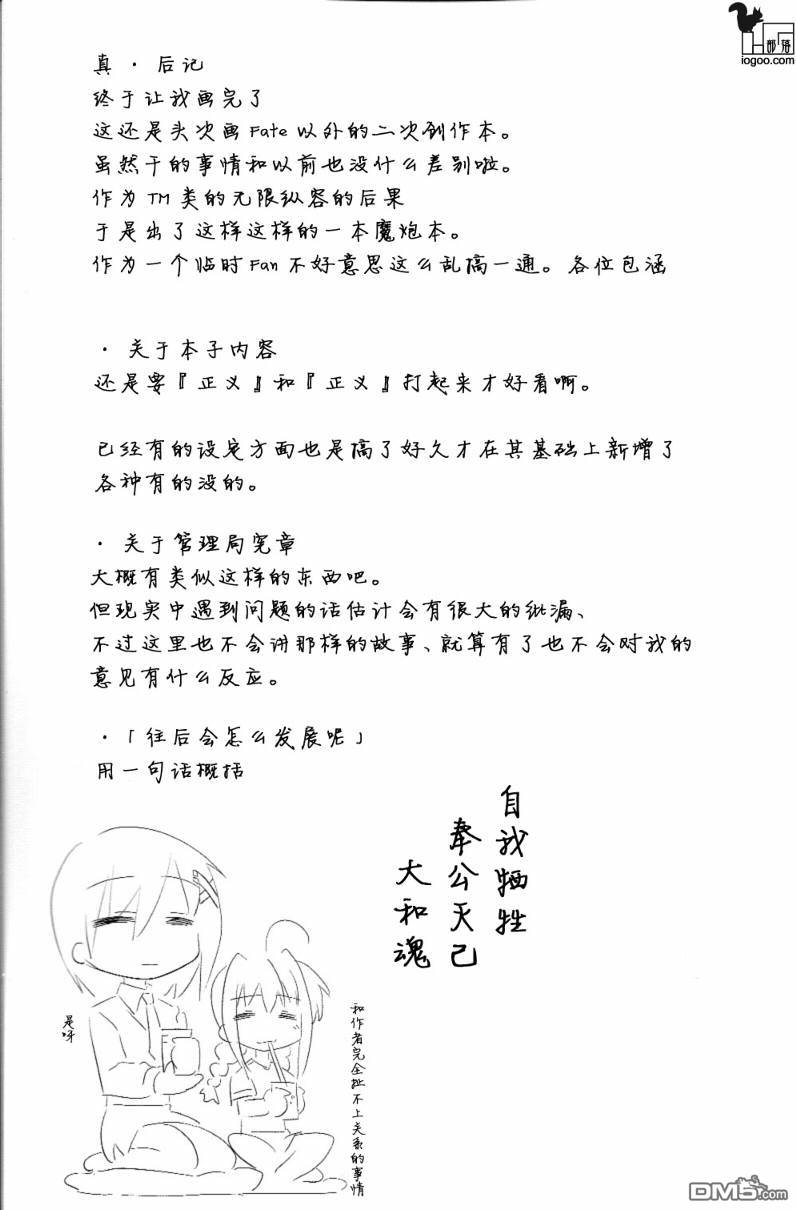 部落
iogoo.com
真·后记
终于让我画完了
这还是头次画Fate以外的二次创作本。
虽然干的事情和以前也没什么差别啦。
作为TM类的无限纵容的后果
于是出了这样这样的一本魔炮本。
作为一个临时Fan不好意思这么乱搞一通。各位包涵
·关于本子内容
还是要『正义』和『正义』打起来才好看啊。
已经有的设定方面也是搞了好久才在其基础上新增了
各种有的没的。
·关于管理局宪章
大概有类似这样的东西吧。
但现实中遇到问题的话估计会有很大的纰漏、
不过这里也不会讲那样的故事、就算有了也不会对我的
意见有什么反应。
·「往后会怎么发展呢」
用一句话概括
自我牺牲
奉公灭己
大和魂
和作者完全扯不上关系的事情
是呀
DM5.com